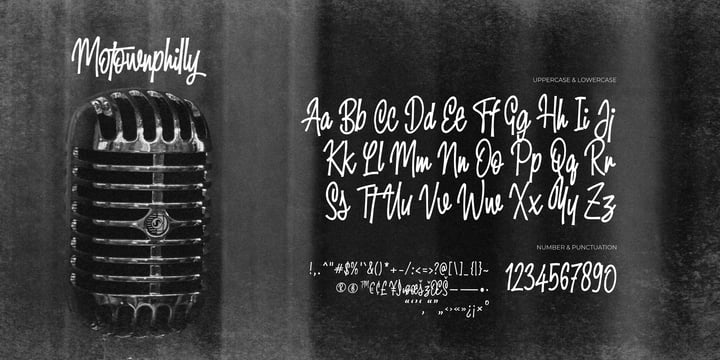 Motownphilly
UPPERCASE & LOWERCASE
Aa Bb Cc Dd Ee Ff Gg Hh Ii Jj
Kk Ll Mm Nn Oo Pp Qq Rr
Ss Tt Uu Vv Ww Xx Yy Zz
NUMBER & PUNCTUATION
!,.^"#$%'`&()*+-/:<=>?@[\]_{|}~
1234567890